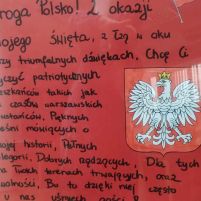 roga Polsko! Z okazji
ojego Święta, z Tą w oku
rzy triumfalnych dźwiękach, Chcę Ci
yczyć patriotycznych
eszkańców takich jak
czasów warszawskich
owstańców, Pięknych
eśni mówiących o
ojej historii, Pełnych
legorii, Dobrych rządzących, Dla tych
na Twoich terenach trwających, oraz
wolności, Bo to dzięki niej często
u nas uśmiech gości